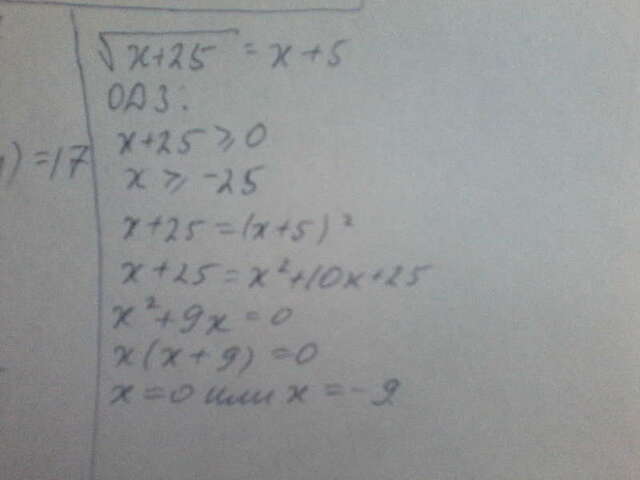 √x+25 = x+5
ОДЗ:
) =17
x+25 ⩾ 0
x ⩾ -25
x+25 = (x+5)²
x+25 = x²+10x+25
x²+9x=0
x(x+9)=0
x=0 или x=-9